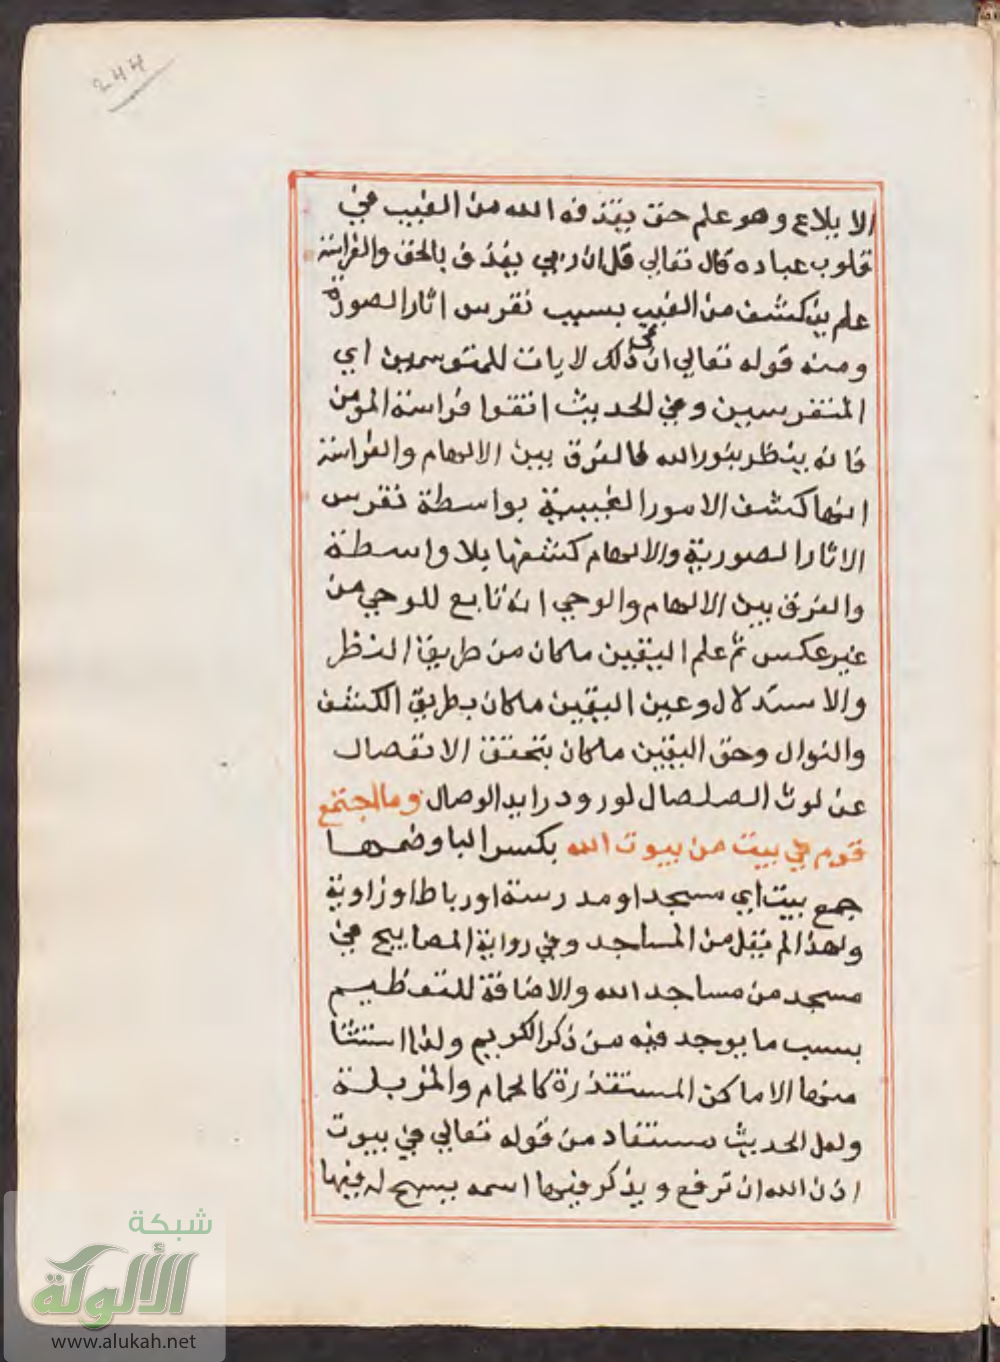 244
الابلاع وهو علم حق يقذفه الله من الغيب في
قلوب عباده قال تعالي قل ان ربي يقذف بالحق والفراسة
علم ينكشف من الغيب بسبب تفرس اثار الصورة
ومنه قوله تعالي ان في ذلك لايات للمتوسمين اي
المتفرسين وفي الحديث اتقوا فراسة المومن
فانه ينظر بنور الله فالفرق بين الالهام والفراسة
انها كشف الامور الغيبية بواسطة تفرس
الاثار الصورية والالهام كشفها بلا واسطة
والفرق بين الالهام والوحي انه تابع للوحي من
غير عكس ثم علم اليقين ما كان من طريق النظر
والاستدلال وعين اليقين ما كان بطريق الكشف
والنوال وحق اليقين ما كان بتحقق الانفصال
عن لوث الصلصال لورود رايد الوصال وما اجتمع
قوم في بيت من بيوت الله بكسر البا وضمها
جمع بيت اي مسجد او مدرسة او رباط او زاوية
ولهذا لم يقل من المساجد وفي رواية المصابيح في
مسجد من مساجد الله والاضافة للتعظيم
بسبب ما يوجد فيه من ذكر الكريم ولذا استثنا
منها الاماكن المستقذرة كالحمام والمزبلة
ولعل الحديث مستفاد من قوله تعالي في بيوت
اذن الله ان ترفع ويذكر فيها اسمه يسبح له فيها
شبكة
الألوكة
www.alukah.net